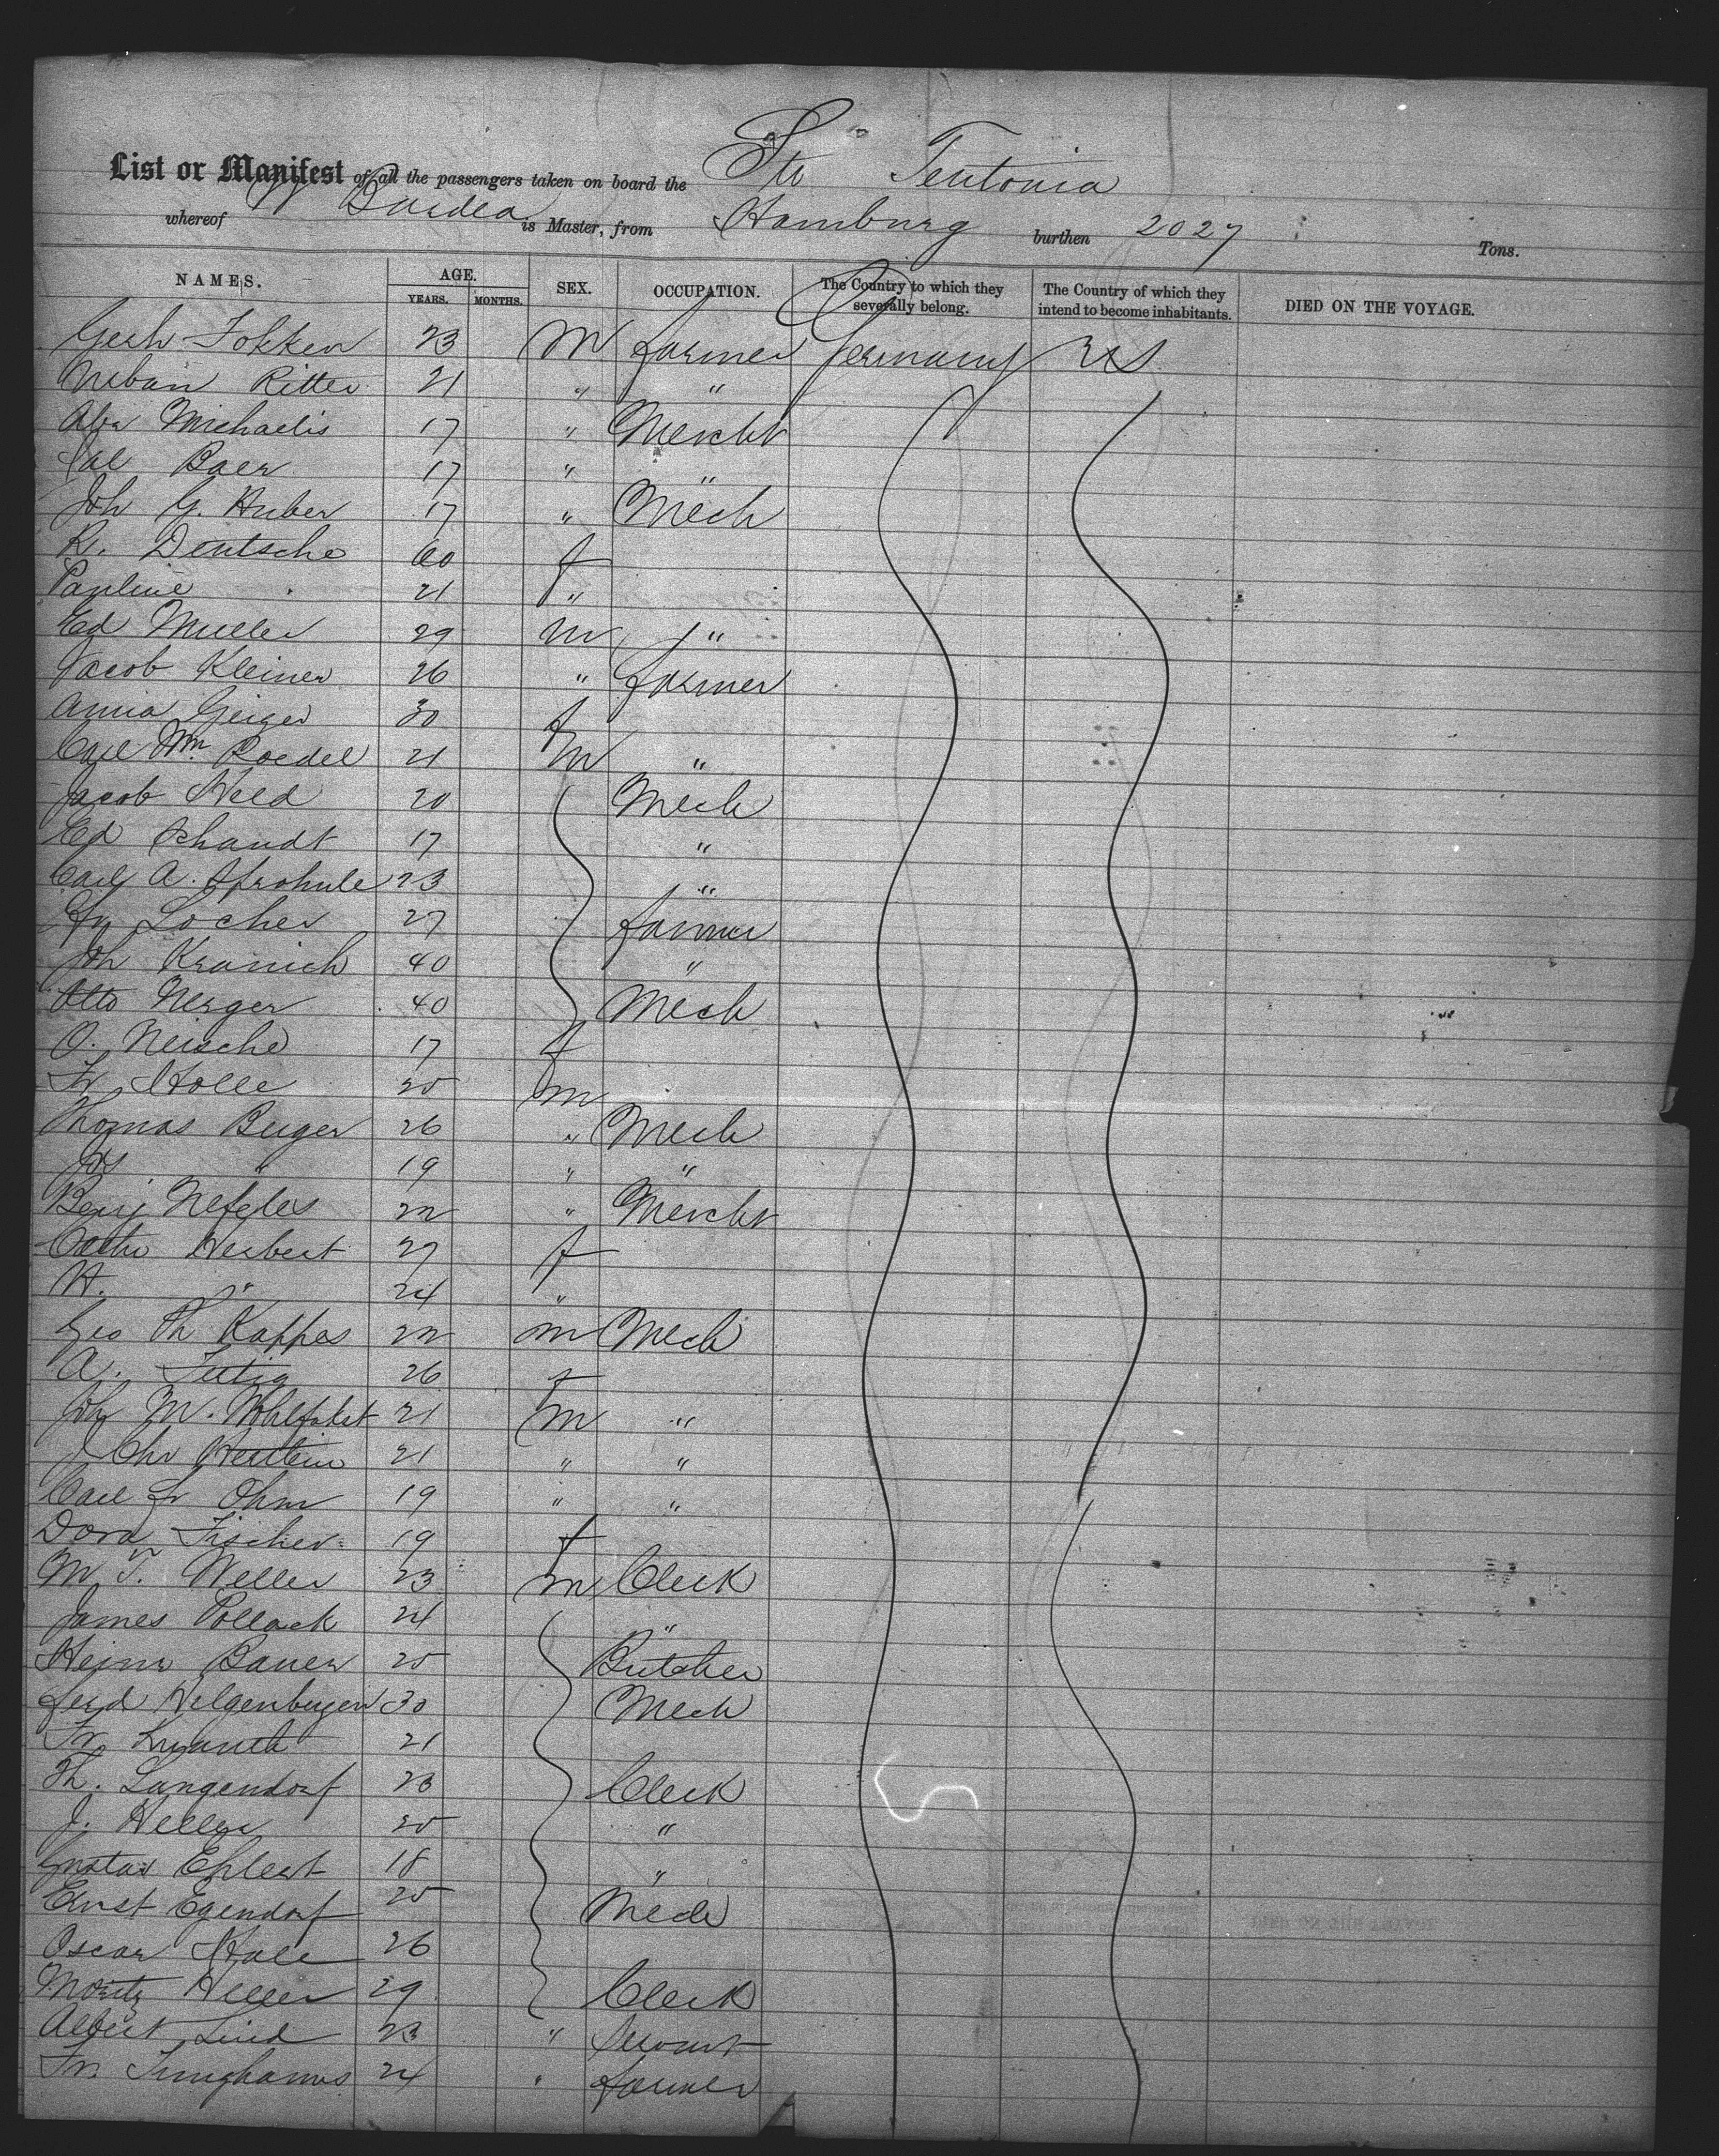 List or Manifest of all the passengers taken on board the Str Teutonia
whereof Bardea is Master, from Hamburg burthen 2027 Tons.
NAMES. AGE. YEARS. MONTHS. SEX. OCCUPATION. The Country to which they severally belong. The Country of which they intend to become inhabitants. DIED ON THE VOYAGE.
Gerh Fokken 23 M farmer Germany US
Urban Ritter 21 " "
Alex Michaelis 17 " Mercht
Sal Baer 17 " "
Joh G. Huber 17 " Mech
R. Deutsche 60 f
Pauline 21 "
Ed Muller 29 m "
Jacob Kleiner 26 " farmer
Anna Geiger 30 f
Carl Wm. Roedel 21 m "
Jacob Held 20 Mech
Ed Schandt 17 "
Carl A. 23 "
Locher 27 farmer
Joh Kranich 40 "
Otto Nerger 40 Mech
O. Neische 17 f
Fr Holle 25 m
Thomas Beiger 26 " Mech
Jos " 19 " "
Benj Nefeles 22 " Mercht
Cath Herbert 27 f
H. " 24 "
Geo Ph Kappes 22 m Mech
A. 26 f
Joh M. Wohlfahrt 21 m "
J Chr Hertlein 21 " "
Carl Fr Ohm 19 " "
Dora Fischer 19 f
M. T. Weller 23 m Clerk
James Pollack 24 "
Heinr Bauer 25 Butcher
Ferd Hilgenbergen 30 Mech
Fr. 21
Th. Langendorf 23 Clerk
J. Heller 25 "
Gustav Ehlert 18 "
Ernst Egendorf 25 Mech
Oscar Halle 26
Moritz Heller 29 Clerk
Albert Lind 23 " Servant
Fr. Junghanns 24 " farmer